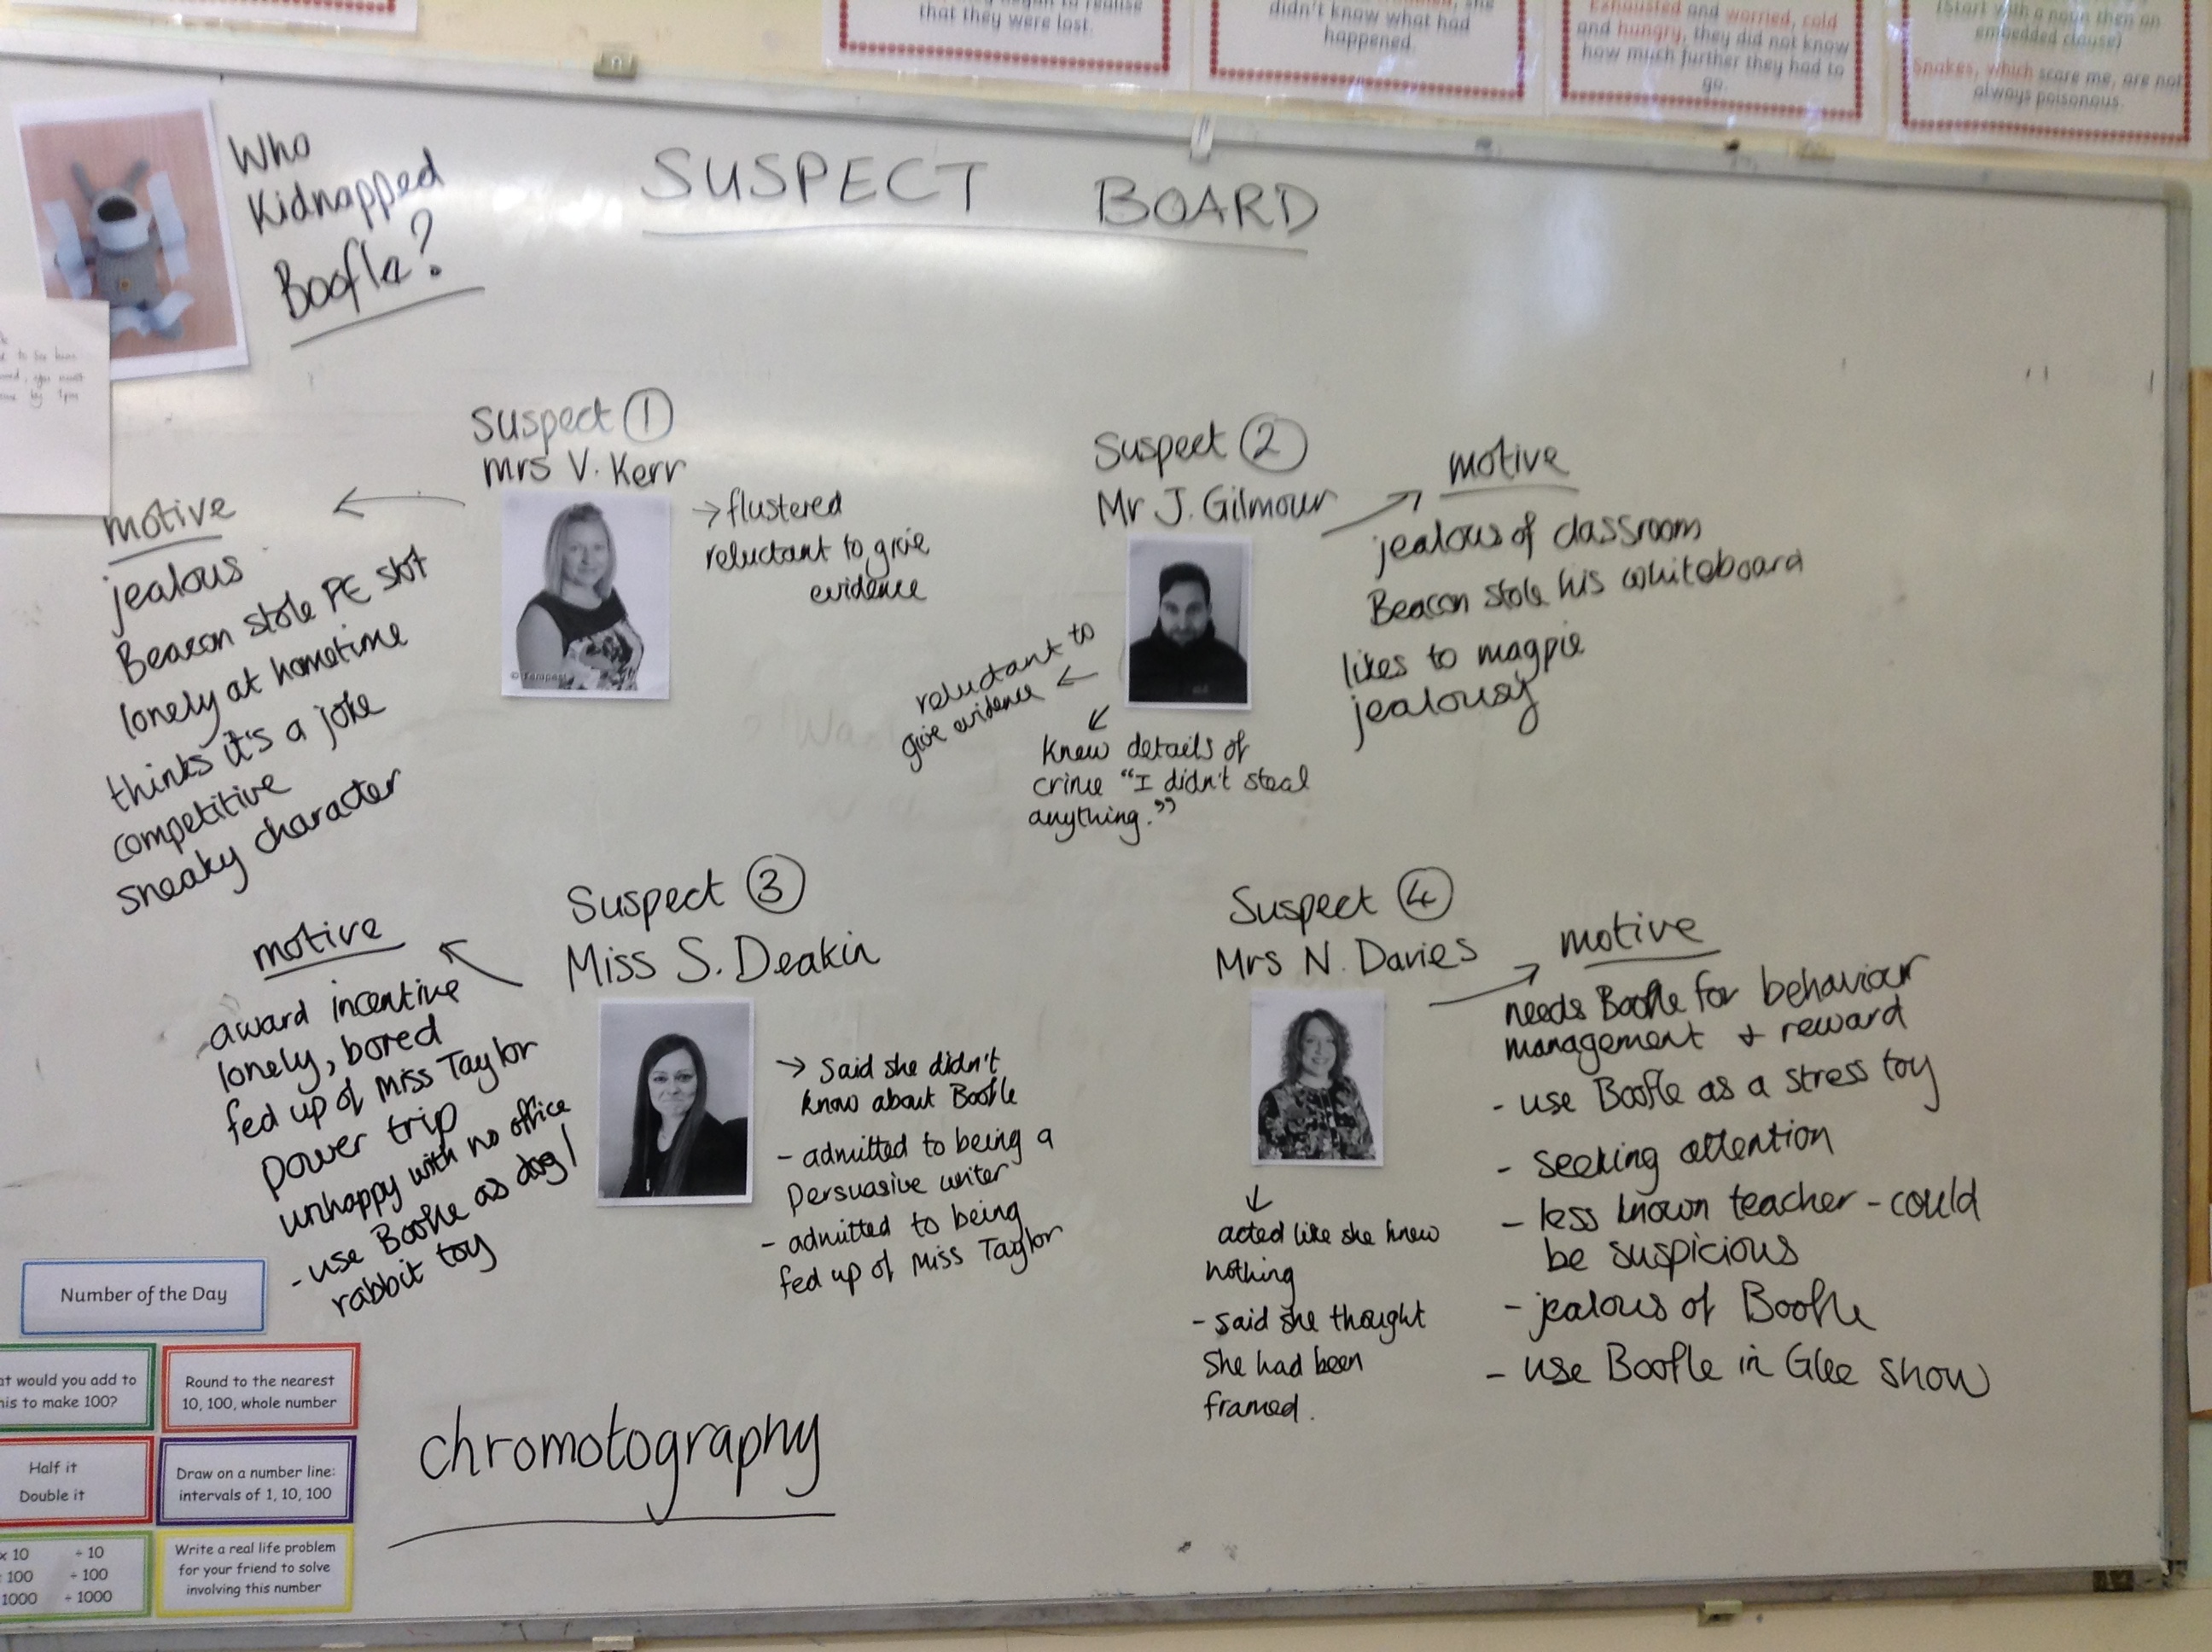 that they were lost.
didn't know what had
happened.
Exhausted and worried, cold
and hungry, they did not know
how much further they had to
go.
(Start with a noun then an
embedded clause)
Snakes, which scare me, are not
always poisonous.
Who
Kidnapped
Boofle?
SUSPECT BOARD
by 1pm
Suspect 1
Mrs V. Kerr
→ flustered
reluctant to give
evidence
© Tempest
motive
jealous
Beacon stole PE slot
lonely at hometime
thinks it's a joke
competitive
sneaky character
Suspect 2
Mr J. Gilmour
motive
jealous of classroom
Beacon stole his whiteboard
likes to magpie
jealousy
reluctant to
give evidence
Knew details of
crime "I didn't steal
anything."
Suspect 3
Miss S. Deakin
motive
award incentive
lonely, bored
fed up of Miss Taylor
power trip
unhappy with no office
- use Boofle as dog/
rabbit toy
→ Said she didn't
know about Boofle
- admitted to being a
Persuasive writer
- admitted to being
fed up of Miss Taylor
Suspect 4
Mrs N. Davies
motive
needs Boofle for behaviour
management + reward
- use Boofle as a stress toy
- seeking attention
- less known teacher - could
be suspicious
- jealous of Boofle
- use Boofle in Glee show
acted like she knew
nothing
- said she thought
She had been
framed.
chromotography
Number of the Day
would you add to
to make 100?
Round to the nearest
10, 100, whole number
Half it
Double it
Draw on a number line:
intervals of 1, 10, 100
x 10 ÷ 10
100 ÷ 100
1000 ÷ 1000
Write a real life problem
for your friend to solve
involving this number